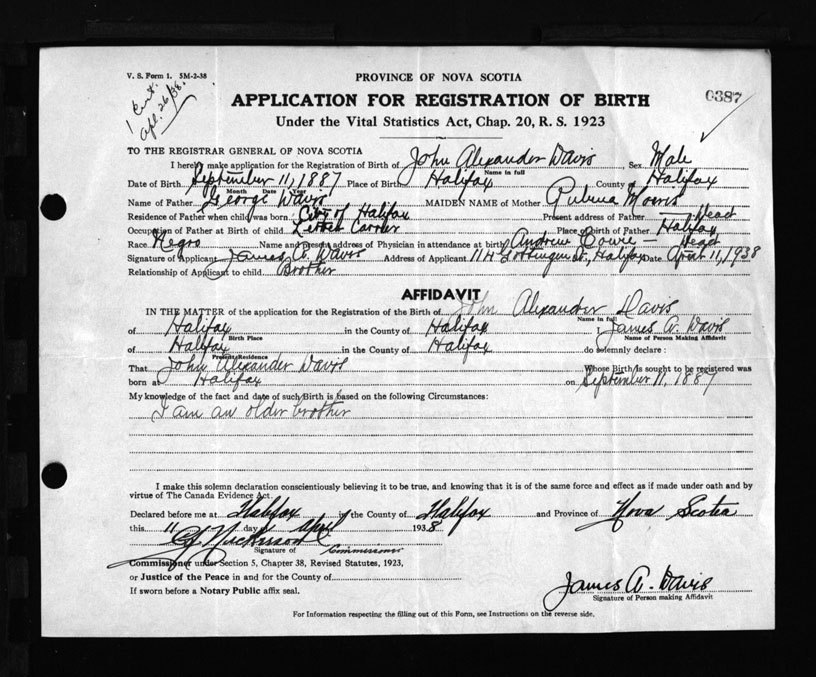 V. S. Form 1. 5M-2-38
1 Cert.
Apl. 26/38.
PROVINCE OF NOVA SCOTIA
0387
APPLICATION FOR REGISTRATION OF BIRTH
Under the Vital Statistics Act, Chap. 20, R. S. 1923
TO THE REGISTRAR GENERAL OF NOVA SCOTIA
I hereby make application for the Registration of Birth of John Alexander Davis Sex Male
Name in full
Date of Birth September 11, 1887 Place of Birth Halifax County of Halifax
Month Date Year
Name of Father George Davis MAIDEN NAME of Mother Morris
Residence of Father when child was born City of Halifax Present address of Father Dead
Occupation of Father at Birth of child Letter Carrier Place of Birth of Father Halifax
Race Negro Name and present address of Physician in attendance at birth Andrew Cowie — Dead
Signature of Applicant James A. Davis Address of Applicant Gottingen St., Halifax Date April 11, 1938
Relationship of Applicant to child Brother
AFFIDAVIT
IN THE MATTER of the application for the Registration of the Birth of John Alexander Davis
Name in full
of Halifax in the County of Halifax I James A. Davis
Birth Place Name of Person Making Affidavit
of Halifax in the County of Halifax do solemnly declare :
Present Residence
That John Alexander Davis Whose Birth is sought to be registered was
born at Halifax on September 11, 1887
My knowledge of the fact and date of such Birth is based on the following Circumstances:
I am an older brother
I make this solemn declaration conscientiously believing it to be true, and knowing that it is of the same force and effect as if made under oath and by
virtue of The Canada Evidence Act.
Declared before me at Halifax of the County of Halifax and Province of Nova Scotia
this 11 day April 1938
Nickerson
Signature of Commissioner
Commissioner under Section 5, Chapter 38, Revised Statutes, 1923,
or Justice of the Peace in and for the County of
If sworn before a Notary Public affix seal.
James A. Davis
Signature of Person making Affidavit
For Information respecting the filling out of this Form, see Instructions on the reverse side.